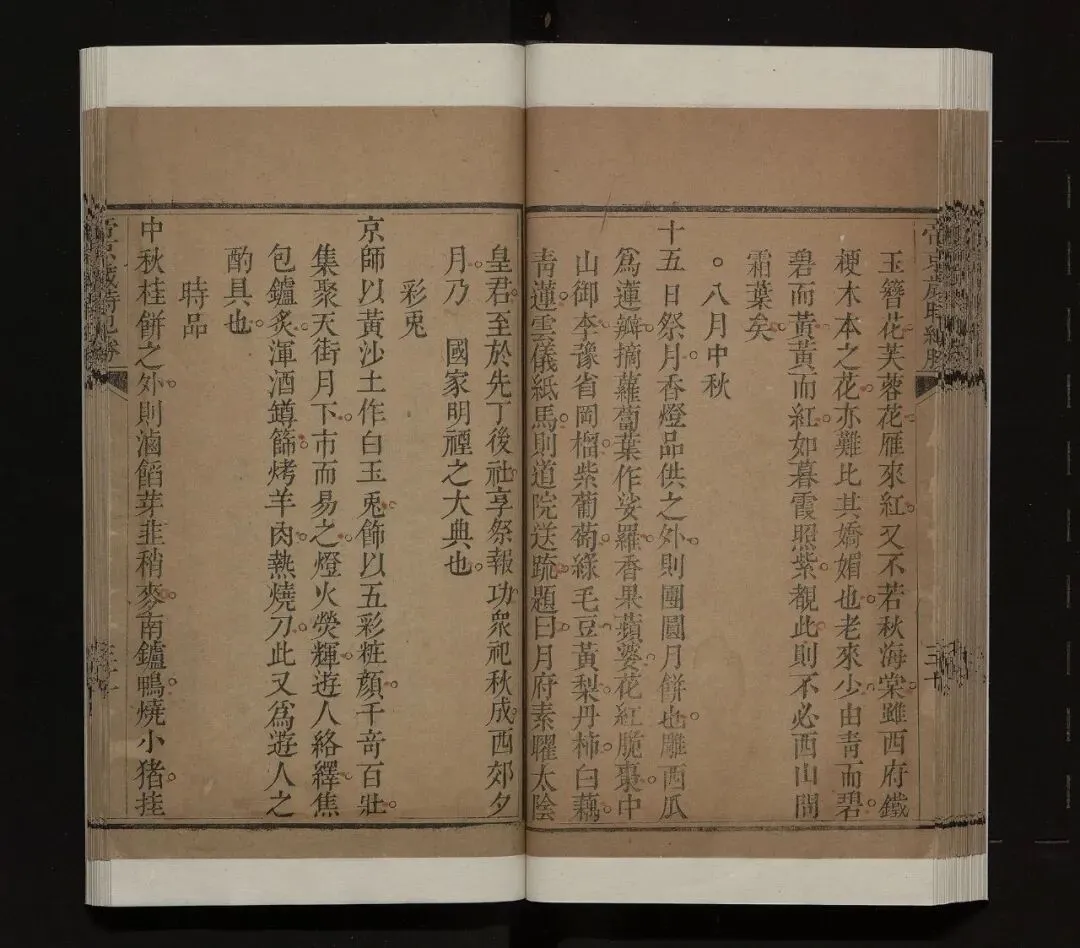 玉簪花芙蓉花雁來紅又不若秋海棠雖西府鐵
梗木本之花亦難比其嬌媚也老來少由青而碧
碧而黃黃而紅如暮霞照紫覩此則不必西山問
霜葉矣
○八月中秋
十五日祭月香燈品供之外則團圓月餅也雕西瓜
爲蓮瓣摘蘿蔔葉作娑羅香果蘋婆花紅脆棗中
山御李豫省岡榴紫葡萄綠毛豆黃梨丹柿白藕
青蓮雲儀紙馬則道院送疏題曰月府素曜太陰
皇君至於先丁後社享祭報功衆祀秋成西郊夕
月乃 國家明禋之大典也
彩兎
京師以黃沙土作白玉兎飾以五彩粧顏千奇百壯
集聚天街月下市而易之燈火熒輝遊人絡繹焦
包鑪炙渾酒罇篩烤羊肉熱燒刀此又爲遊人之
酌具也
時品
中秋桂餅之外則滷餡芽韭稍麥南鑪鴨燒小猪挂